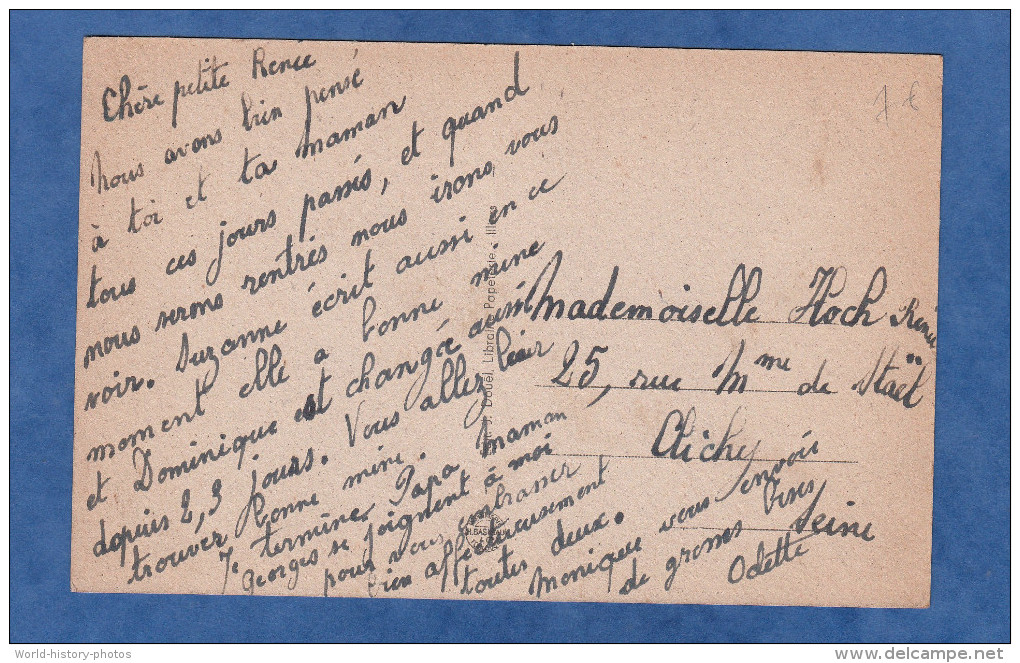 Chère petite Renée
nous avons bien pensé
à toi et ta maman
tous ces jours passés, et quand
nous serons rentrés nous irons vous
voir. Suzanne écrit aussi en ce
moment elle a bonne mine
et Dominique est changée aussi
depuis 2, 3 jours. Vous allez leur
trouver bonne mine.
Je termine, Papa maman
Georges se joignent à moi
pour vous embrasser
bien affectueusement
toutes deux.
Monique vous envoie
de grosses bises
Odette
Mademoiselle Hoch Renée
25, rue Mme de Staël
Clichy
Seine
Douël, Librairie Papeterie - Illiers
7 €
World-history-photos
www.delcampe.net